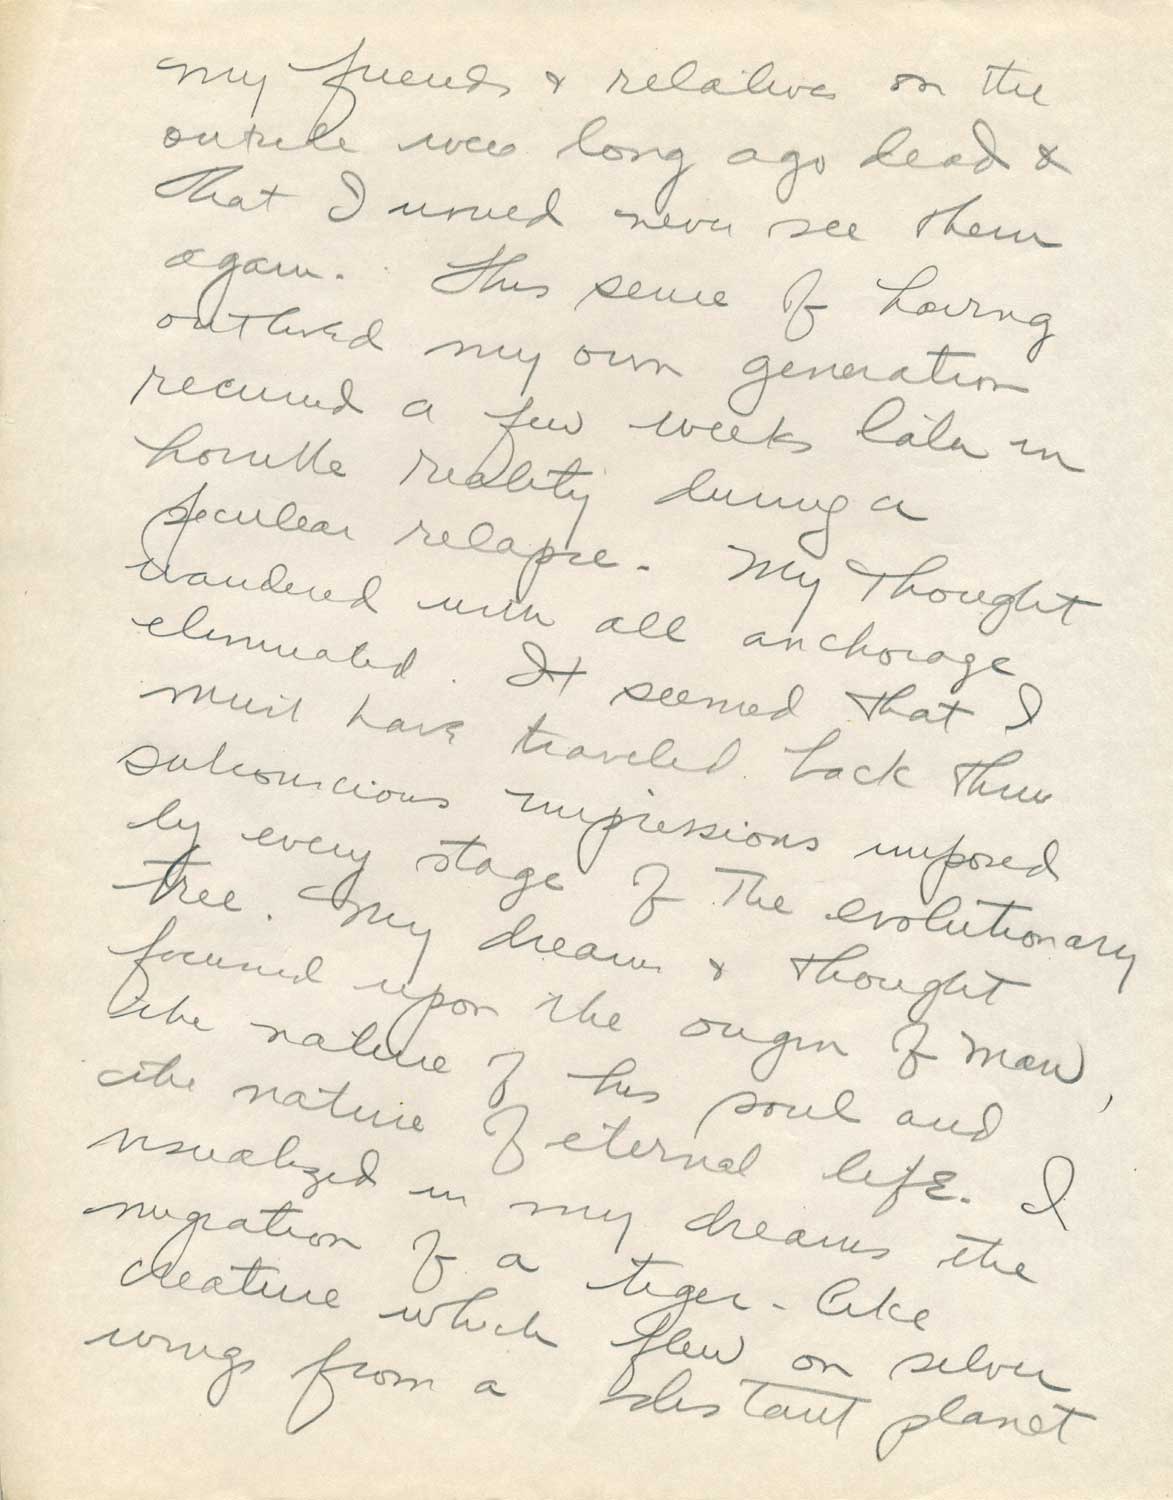 my friends & relatives on the
outside were long ago dead &
that I would never see them
again. This sense of having
outlived my own generation
recurred a few weeks later in
horrible reality during a
peculiar relapse. My thought
wandered with all anchorage
eliminated. It seemed that I
must have traveled back thru
subconscious impressions imposed
by every stage of the evolutionary
tree. My dreams & thought
focused upon the origin of man,
the nature of his soul and
the nature of eternal life. I
visualized in my dreams the
migration of a tiger-like
creature which flew on silver
wings from a distant planet